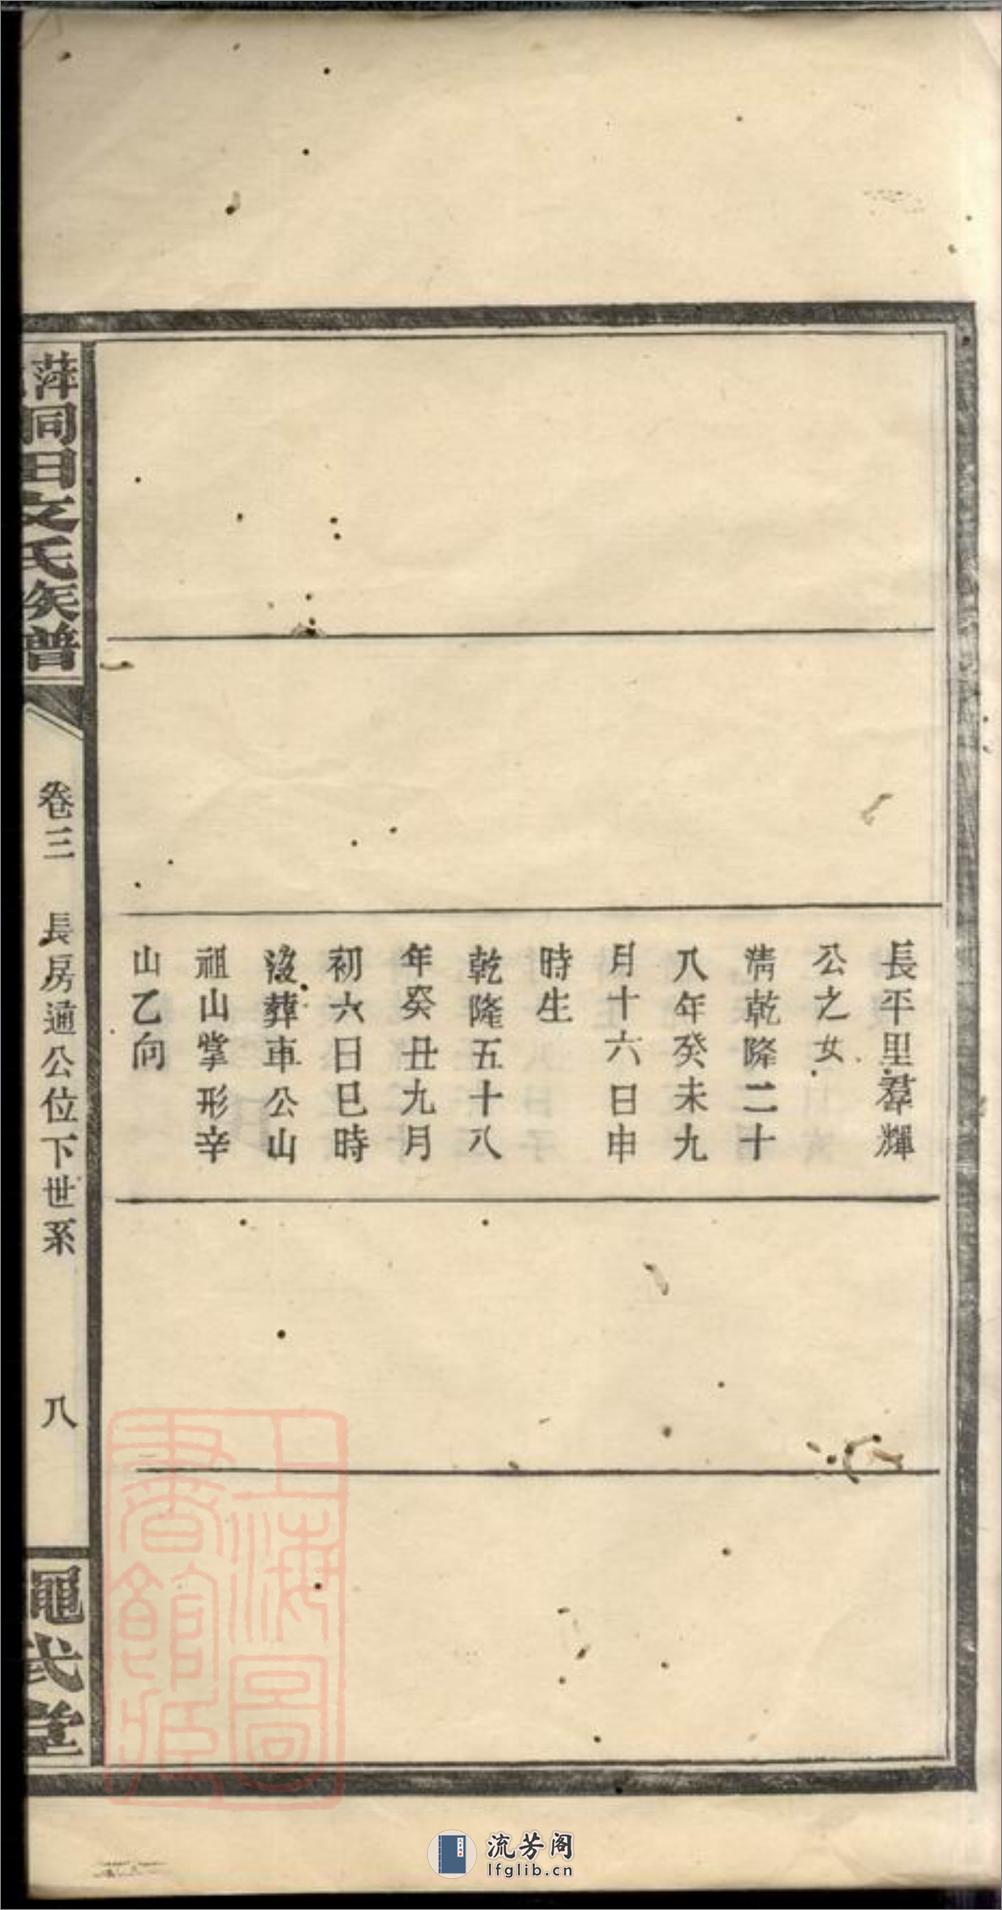 長平里羣輝
公之女
清乾隆二十
八年癸未九
月十六日申
時生
乾隆五十八
年癸丑九月
初六日巳時
沒葬車公山
祖山掌形辛
山乙向
萍洞田文氏族譜
卷三 長房通公位下世系 八
繩武堂
上海圖書館藏
流芳阁
lfglib.cn